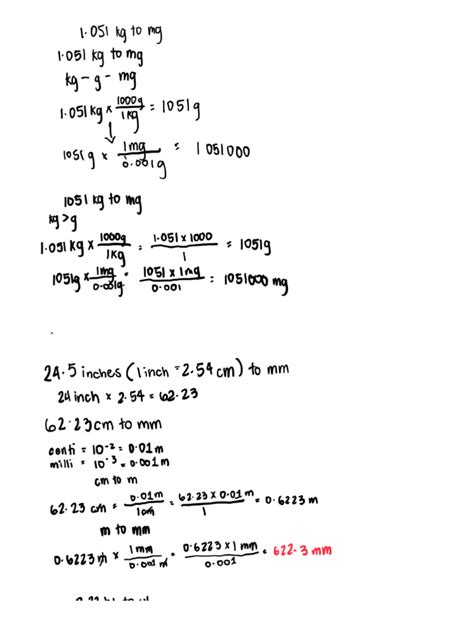 1.051 kg to mg
1.051 kg to mg
kg - g - mg
1.051 kg × 1000g/1kg = 1051 g
↓
1051 g × 1mg/0.001g = 1 051000
1051 kg to mg
kg > g
1.051 kg × 1000g/1kg = 1.051 x 1000/1 = 1051g
1051g × 1mg/0.001g = 1051 x 1mg/0.001 = 1051000 mg
24.5 inches (1inch = 2.54 cm) to mm
24 inch × 2.54 = 62.23
62.23cm to mm
centi = 10⁻² = 0.01m
milli = 10⁻³ = 0.001m
cm to m
62.23 cm = 0.01m/1cm = 62.23 x 0.01m/1 = 0.6223 m
m to mm
0.6223 m × 1mm/0.001 m = 0.6223 x 1 mm/0.001 = 622.3 mm